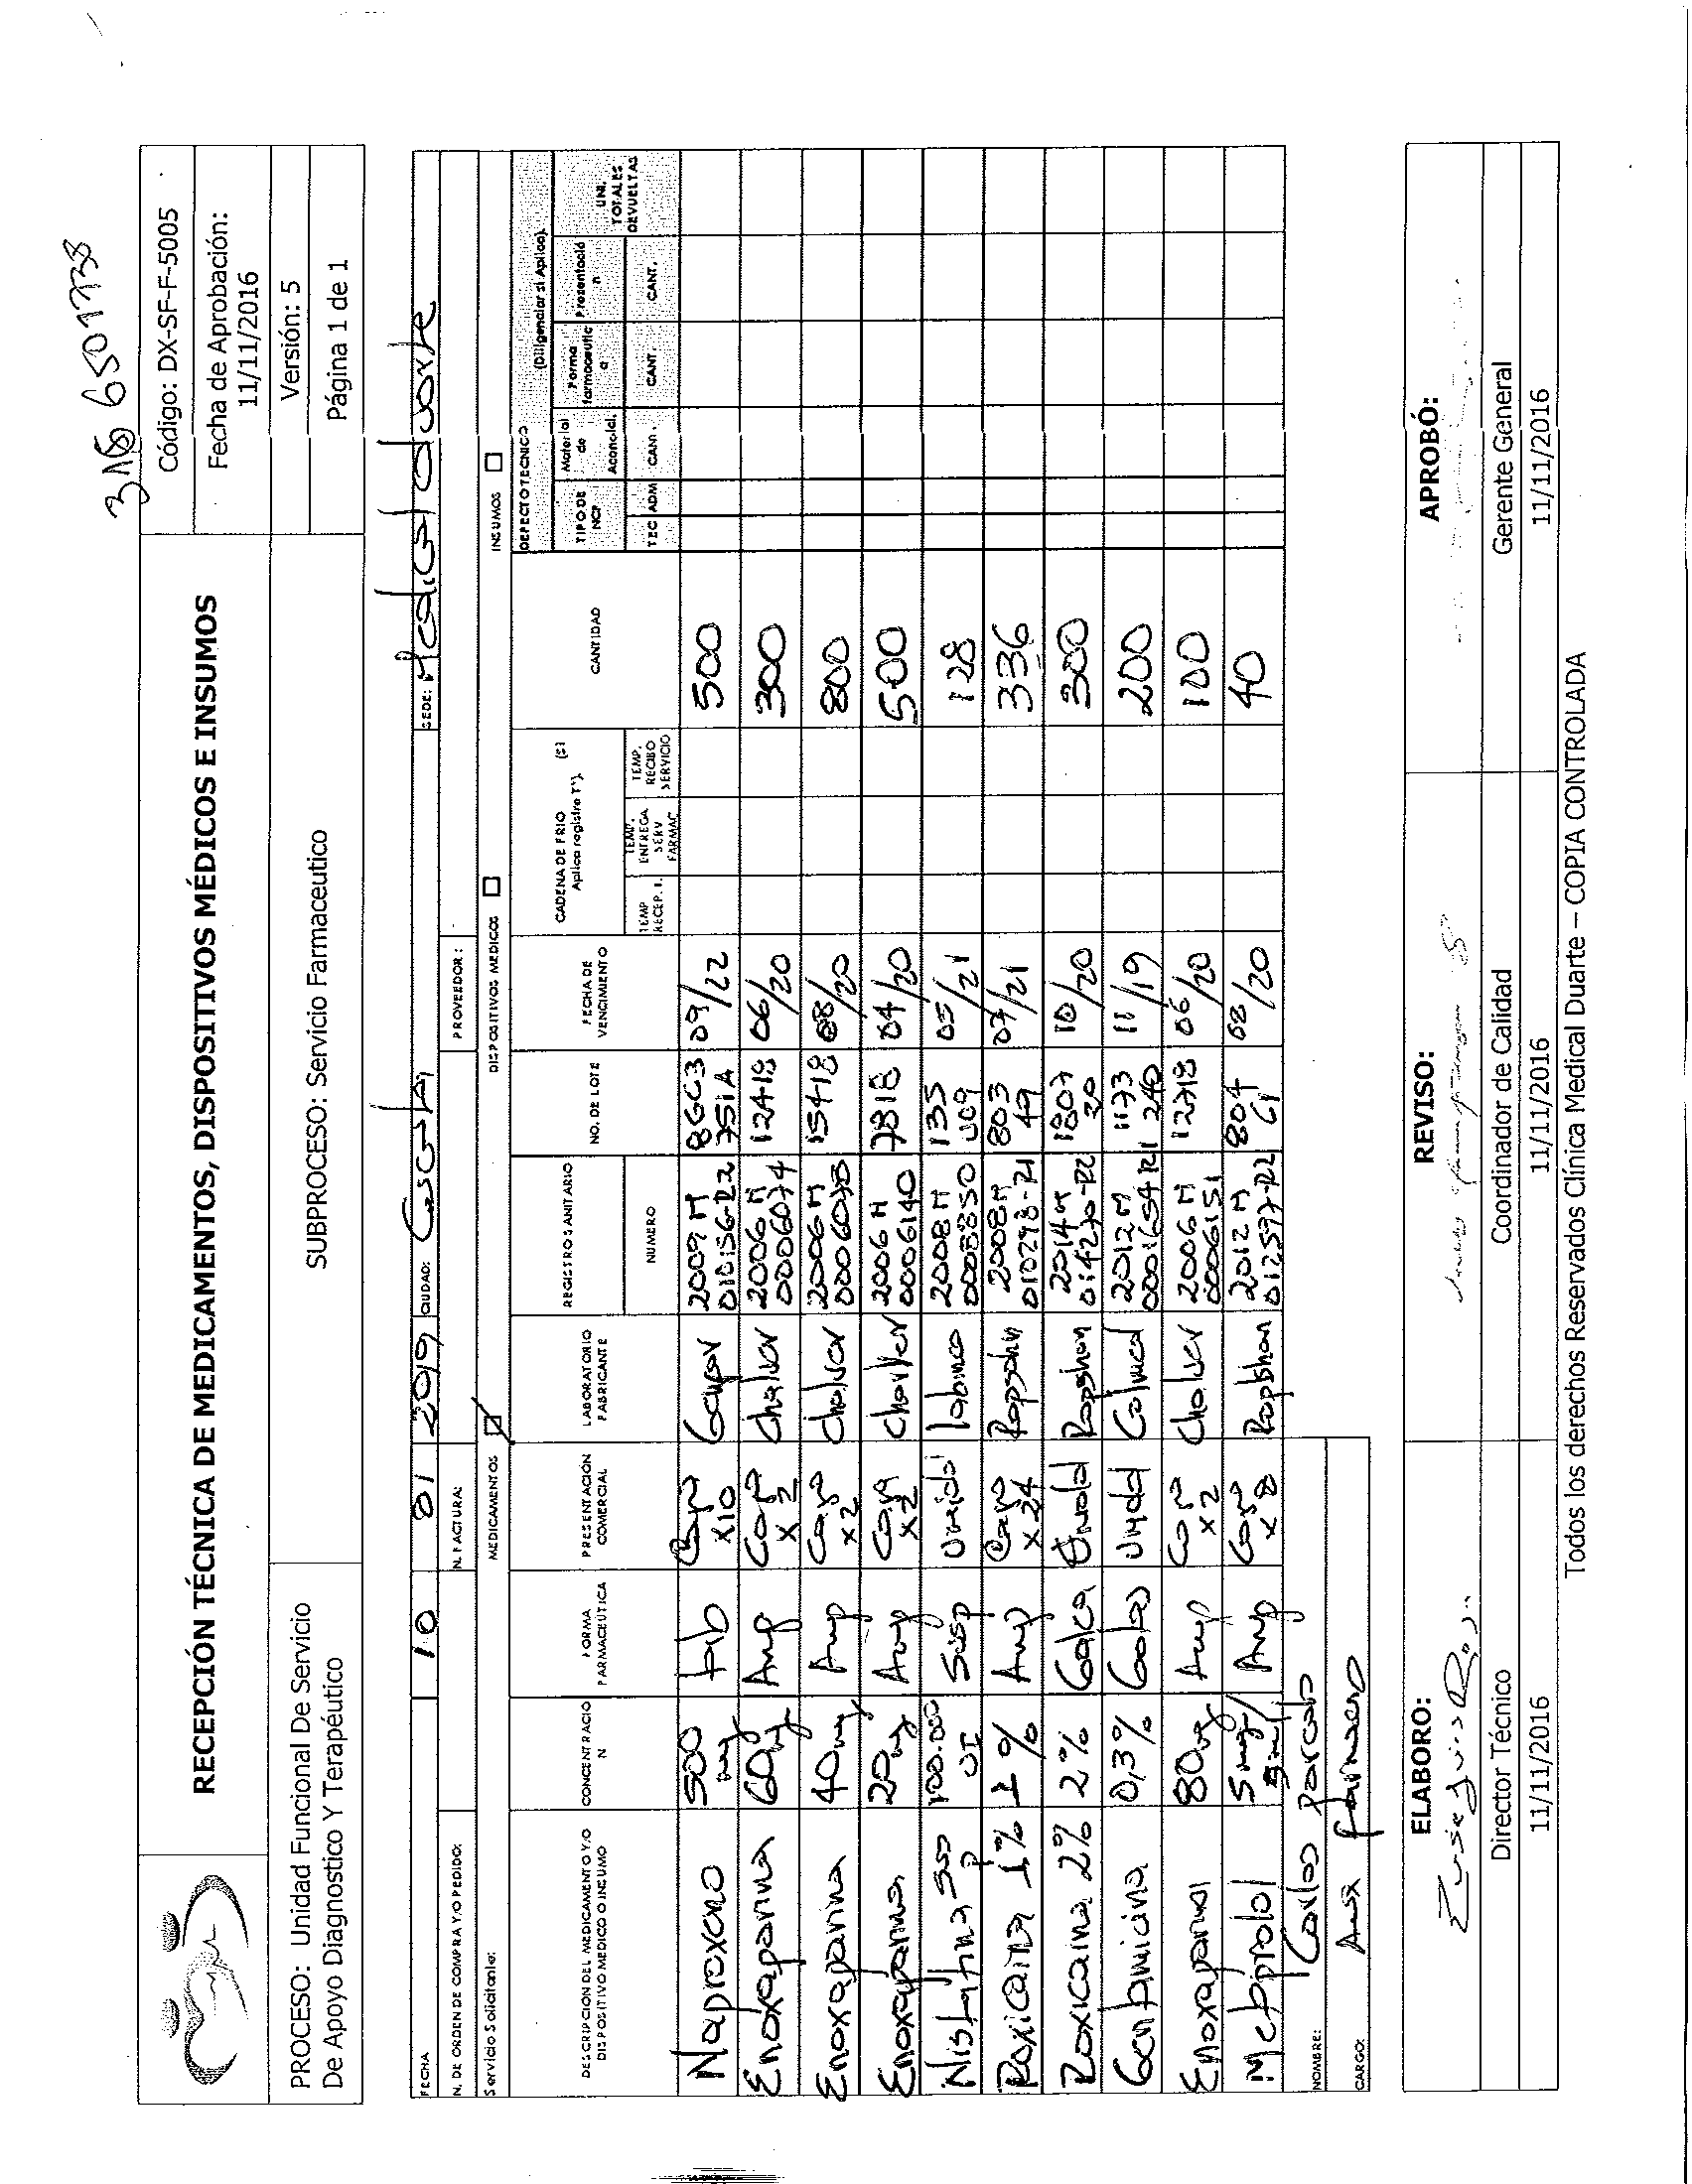 316 6501738
RECEPCIÓN TÉCNICA DE MEDICAMENTOS, DISPOSITIVOS MÉDICOS E INSUMOS
Código: DX-SF-F-5005
Fecha de Aprobación:
11/11/2016
PROCESO: Unidad Funcional De Servicio
De Apoyo Diagnostico Y Terapéutico
SUBPROCESO: Servicio Farmaceutico
Versión: 5
Página 1 de 1
FECHA 10 01 2019 CIUDAD: Cucuta SEDE: Medical duarte
N. DE ORDEN DE COMPRA Y/O PEDIDO: N. FACTURA: PROVEEDOR:
Servicio Solicitante: MEDICAMENTOS DISPOSITIVOS MEDICOS INSUMOS
DESCRIPCION DEL MEDICAMENTO Y/O DISPOSITIVO MEDICO O INSUMO
CONCENTRACIO N
FORMA FARMACEUTICA
PRESENTACIÓN COMERCIAL
LABORATORIO FABRICANTE
REGISTRO SANITARIO
NUMERO
NO. DE LOTE
FECHA DE VENCIMIENTO
CADENA DE FRIO (SI Aplica registre T°).
TEMP RECEP. I.
TEMP. ENTREGA SERV FARMAC
TEMP. RECIBO SERVICIO
CANTIDAD
DEFECTO TECNICO (Diligenciar si Aplica)
TIPO DE NCP
TEC ADM
Material de Acondci. CANT.
Forma farmaceutic a CANT.
Presentació n CANT.
UNI. TOTALES DEVUELTAS
Naproxeno 500 mg tab Caja x10 2009 M 010156-R2 86G3 751A 09/22 500
Enoxaparina 60mg Amp Caja x 2 Chalver 2006 M 0006074 12418 06/20 300
Enoxaparina 40mg Amp Caja x2 Chalver 2006 M 15418 08/20 800
Enoxaparina 20mg Amp Caja x2 Chalver 2006 M 0006140 7818 04/20 500
Nistatina susp 100.000 UI Susp Unidad labinco 2008 M 0008850 135 U09 05/21 128
Roxicaina 1% 1% Amp Caja x 24 Ropsohn 2008 M 010298-R1 803 49 07/21 336
Roxicaina 2% 2% Unidad Ropsohn 2014 M 014270-R2 1807 30 10/20 300
Gentamicina 0,3% Gotas Unidad 2012 M 0001654 R1 1173 240 11/19 200
Enoxaparina 80mg Amp Caja x2 Chalver 2006 M 0006151 12718 06/20 100
Metoprolol 5 mg/ 5ml Amp Caja x 8 Ropsohn 2012 M 012597-R2 804 61 02/20 40
NOMBRE: Carlos
CARGO: Aux farmacia
ELABORO: REVISO: APROBÓ:
Director Técnico Coordinador de Calidad Gerente General
11/11/2016 11/11/2016 11/11/2016
Todos los derechos Reservados Clínica Medical Duarte – COPIA CONTROLADA